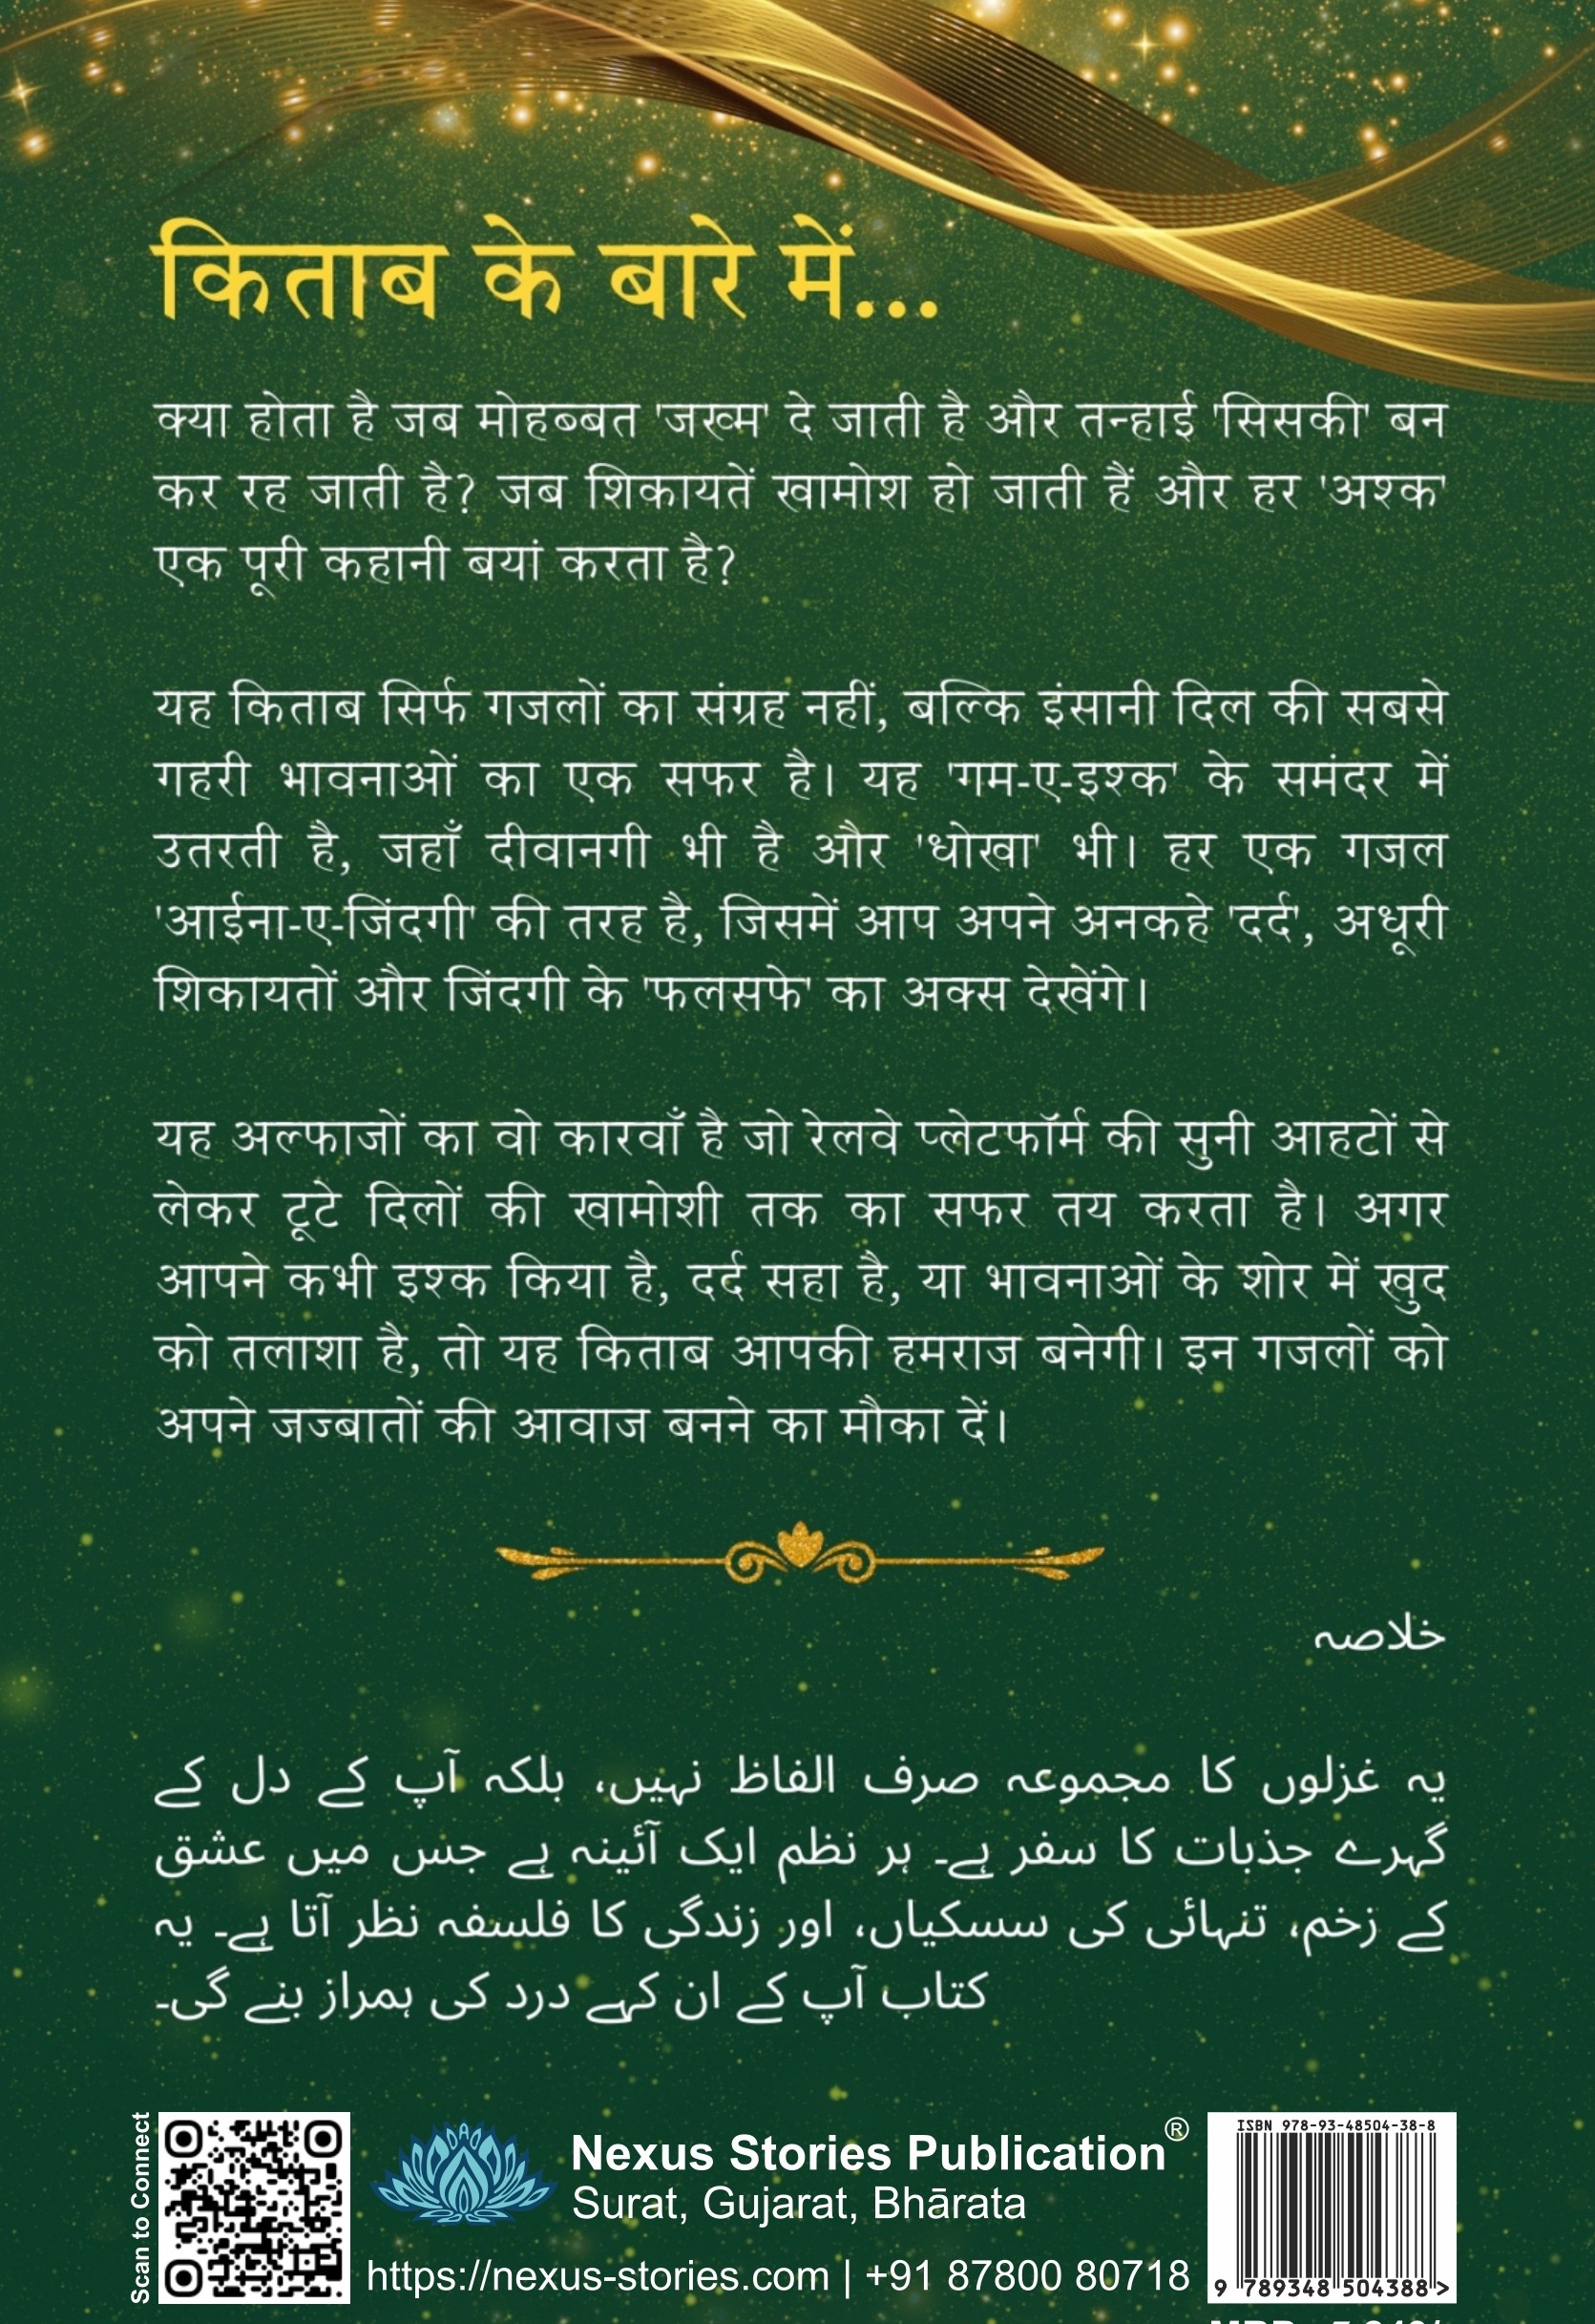 किताब के बारे में...
क्या होता है जब मोहब्बत 'जख्म' दे जाती है और तन्हाई 'सिसकी' बन
कर रह जाती है? जब शिकायतें खामोश हो जाती हैं और हर 'अश्क'
एक पूरी कहानी बयां करता है?
यह किताब सिर्फ गजलों का संग्रह नहीं, बल्कि इंसानी दिल की सबसे
गहरी भावनाओं का एक सफर है। यह 'गम-ए-इश्क' के समंदर में
उतरती है, जहाँ दीवानगी भी है और 'धोखा' भी। हर एक गजल
'आईना-ए-जिंदगी' की तरह है, जिसमें आप अपने अनकहे 'दर्द', अधूरी
शिकायतों और जिंदगी के 'फलसफे' का अक्स देखेंगे।
यह अल्फाजों का वो कारवाँ है जो रेलवे प्लेटफॉर्म की सुनी आहटों से
लेकर टूटे दिलों की खामोशी तक का सफर तय करता है। अगर
आपने कभी इश्क किया है, दर्द सहा है, या भावनाओं के शोर में खुद
को तलाशा है, तो यह किताब आपकी हमराज बनेगी। इन गजलों को
अपने जज्बातों की आवाज बनने का मौका दें।
خلاصہ
یہ غزلوں کا مجموعہ صرف الفاظ نہیں، بلکہ آپ کے دل کے
گہرے جذبات کا سفر ہے۔ ہر نظم ایک آئینہ ہے جس میں عشق
کے زخم، تنہائی کی سسکیاں، اور زندگی کا فلسفہ نظر آتا ہے۔ یہ
کتاب آپ کے ان کہے درد کی ہمراز بنے گی۔
Scan to Connect
Nexus Stories Publication®
Surat, Gujarat, Bhārata
https://nexus-stories.com | +91 87800 80718
ISBN 978-93-48504-38-8
9 789348 504388 >